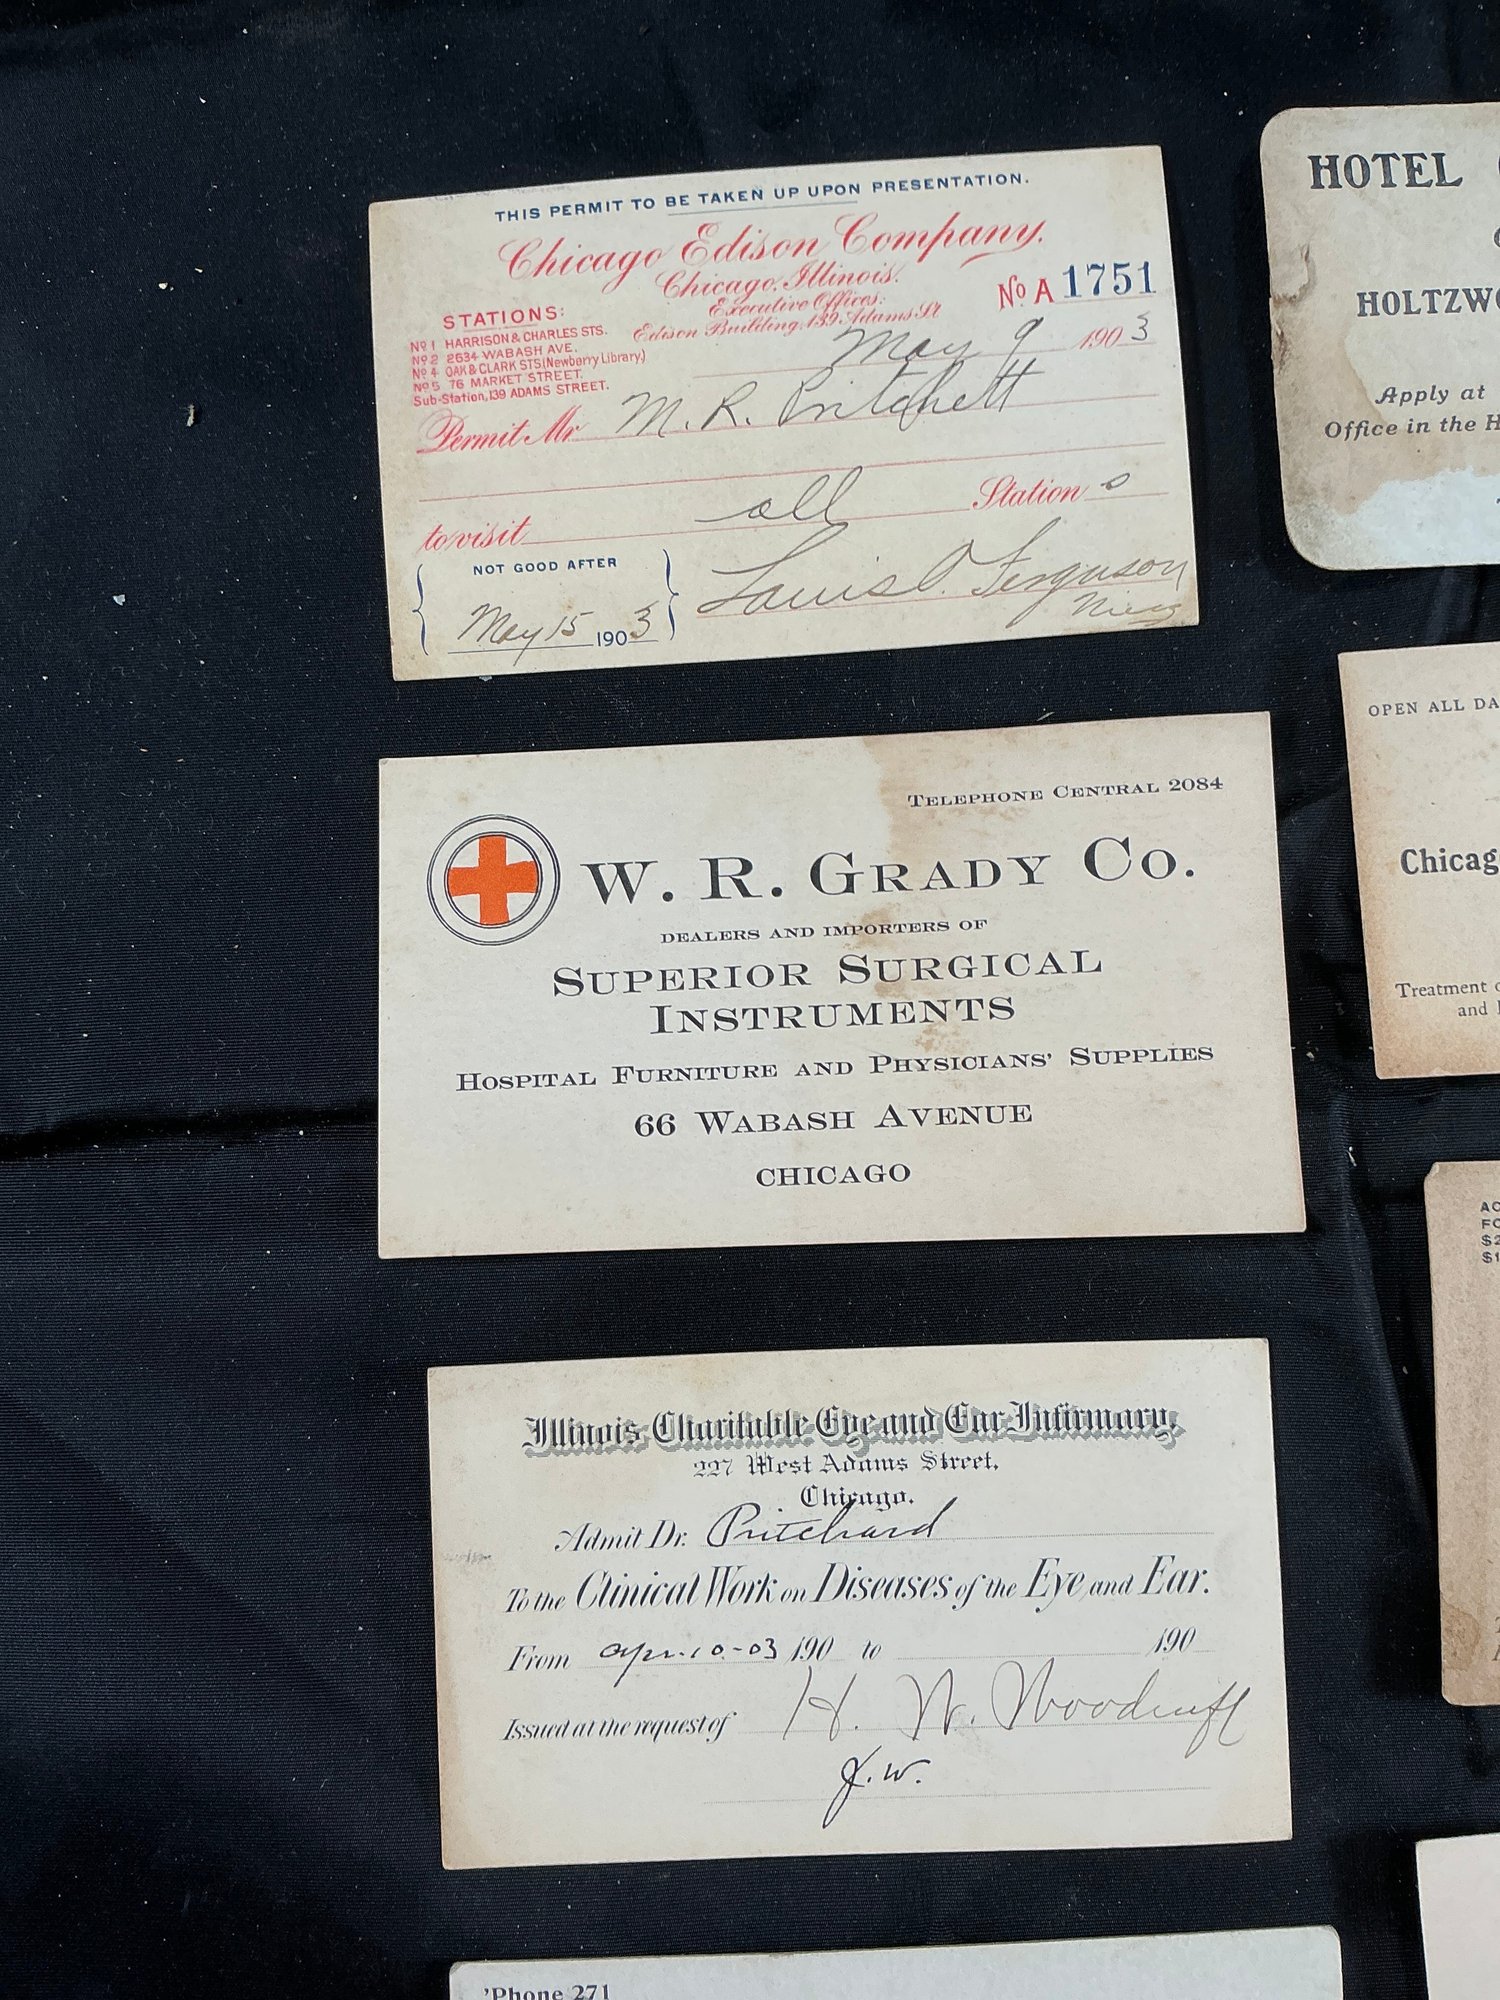 THIS PERMIT TO BE TAKEN UP UPON PRESENTATION.
Chicago Edison Company.
Chicago, Illinois.
Executive Offices:
Edison Building, 139 Adams St
No A 1751
STATIONS:
No 1 HARRISON & CHARLES STS.
No 2 2634 WABASH AVE.
No 4 OAK & CLARK STS (Newberry Library)
No 5 76 MARKET STREET.
Sub-Station, 139 ADAMS STREET.
May 9 1903
Permit Mr. M. R. Pritchett
to visit all Stations
NOT GOOD AFTER
May 15 1903
Louis A. Ferguson
HOTEL
HOLTZW
Apply at
Office in the H
TELEPHONE CENTRAL 2084
W. R. GRADY CO.
DEALERS AND IMPORTERS OF
SUPERIOR SURGICAL
INSTRUMENTS
HOSPITAL FURNITURE AND PHYSICIANS' SUPPLIES
66 WABASH AVENUE
CHICAGO
OPEN ALL DA
Chicag
Treatment
and
AC
FO
$2
$1
Illinois Charitable Eye and Ear Infirmary,
227 West Adams Street,
Chicago.
Admit Dr. Pritchard
To the Clinical Work on Diseases of the Eye and Ear.
From Apr. 10-03 190 to 190
Issued at the request of H. W. Woodruff
J.W.
'Phone 271